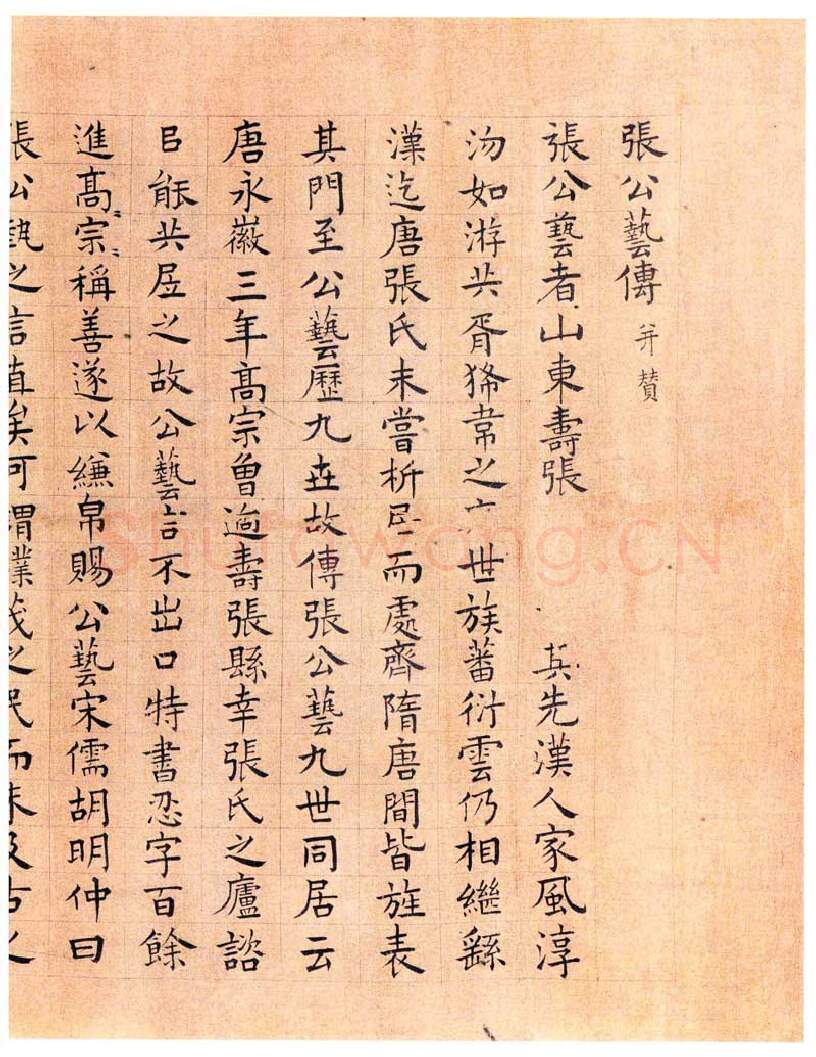 張公藝傳 并贊
張公藝者山東壽張 其先漢人家風淳
沕如游共胥狶韋之 世族蕃衍雲仍相繼繇
漢迄唐張氏未嘗析居而處齊隋唐間皆旌表
其門至公藝歷九世故傳張公藝九世同居云
唐永徽三年高宗曾過壽張縣幸張氏之廬諮
㠯能共居之故公藝言不出口特書忍字百餘
進高〻宗〻稱善遂以縑帛賜公藝宋儒胡明仲曰
張公藝之言直矣可謂業茂之民而未及古之
shufawang.CN